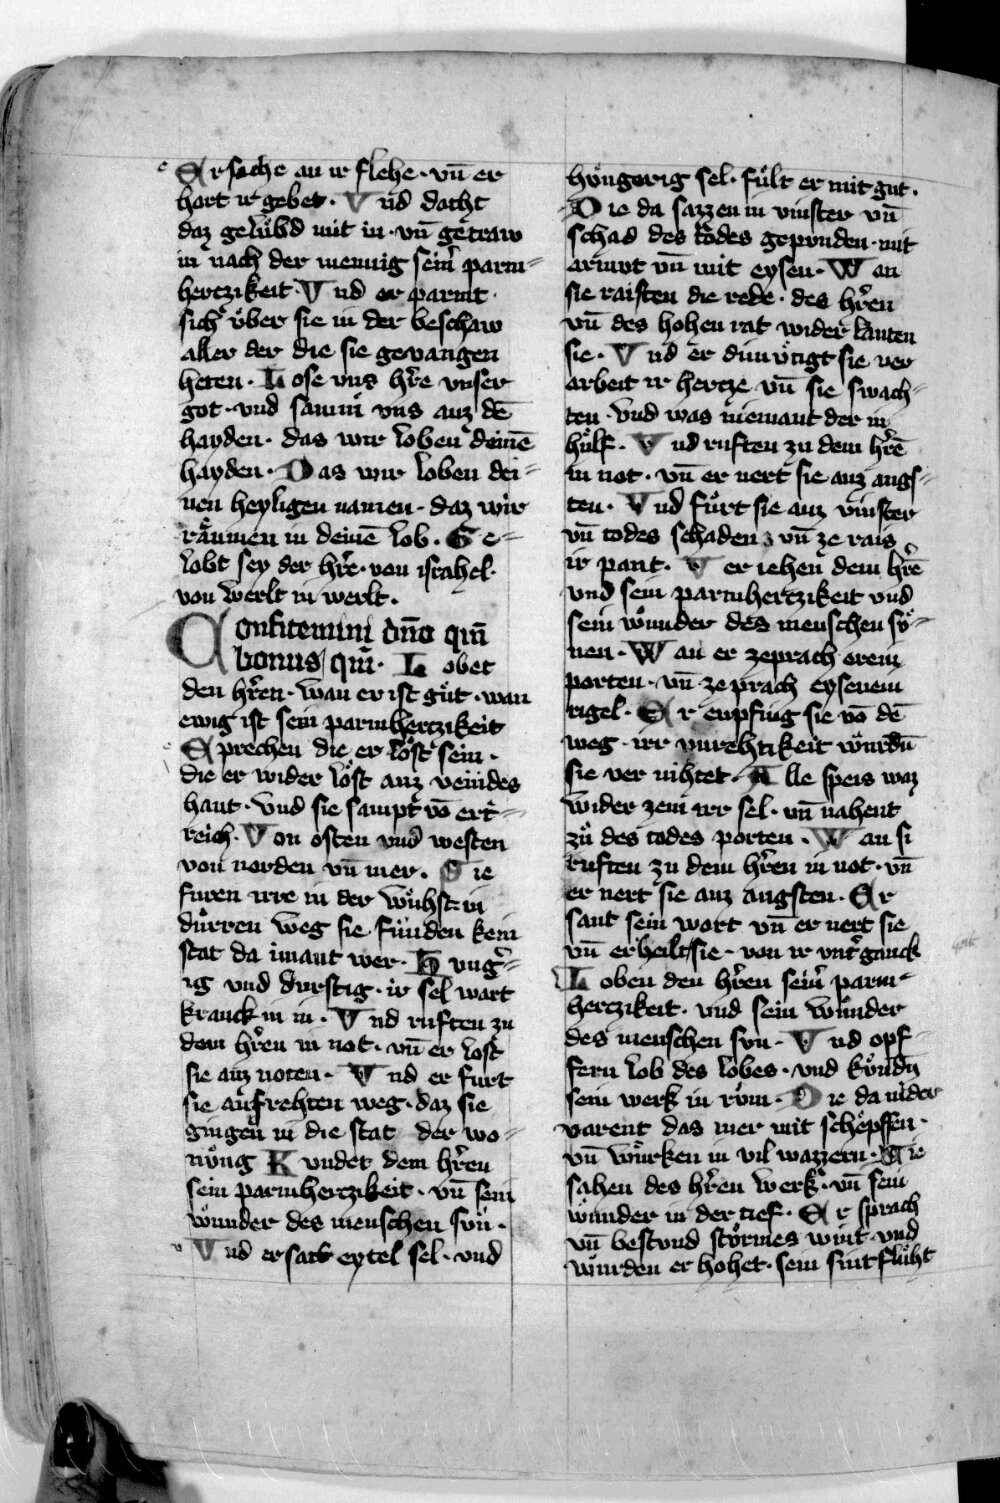 Er sache an ir flehe · vn̄ er
hort ir gebet · Vnd dacht
daz gelübd mit in · vn̄ getraw
in nach der mennig seinr̄ parm=
hertzikeit · Vnd er parmt
sich über sie in der beschaw
aller der die sie gevangen
heten · Lose vns hr̄re vnser
got · vnd samm vns auz dē
hayden · das wir loben deinē
hayden · Das wir loben dei=
nen heyligen namen · daz wir
räumen in deinē lob · Ge=
lobt sey der hr̄re · von israhel ·
von werlt in werlt ·
Confitemini dn̄o qm̄
bonus qm̄ · Lobet
den hr̄ren · wan er ist gut · wan
ewig ist sein parmhertzikeit
Sprechen die er löst sein ·
die er wider löst auz veindes
hant · vnd sie sampt vō ert=
reich · Von osten vnd westen
von norden vn̄ mer · Sie
furen irre in der wühst in
dürren weg sie fünden kein
stat da imant wer · Hungr̄=
ig vnd durstig · ir sel wart
kranck in in · Vnd ruften zu
dem hr̄ren in not · vn̄ er lost
sie auz noten · Vnd er furt
sie aufrehten weg · daz sie
gingen in die stat der wo=
nöng Kundet dem hr̄ren
sein parmhertzikeit · vn̄ sein
wunder des menschen sün ·
Vnd er satt eytel sel · vnd
hüngerig sel · fült er mit gut ·
Die da sazzen in vinster vn̄
schad des todes gepunden · mit
armut vn̄ mit eysen · Wan
sie raisten die rede · des hr̄ren
vn̄ des hohen rat wider lanten
sie · Vnd er dimütigt sie ver
arbeit ir hertze vn̄ sie swach=
ten · vnd was niemant der in
hülf · Vnd ruften zu dem hr̄rē
in not · vn̄ er nert sie auz angs=
ten · Vnd fürt sie auz vinster
vn̄ todes schaden vn̄ ze rais
ir pant · Ver iehen dem hr̄rē
vnd sein parmhertzikeit vnd
sein wunder des menschen sö=
nen · Wan er zeprach erein
porten · vn̄ ze prach eysenein
rigel · Er enpfing sie vō dē
weg · irr vnrehtikeit würdn̄
sie ver nihtet · Alle speis waz
wider zem irr sel · vn̄ nahent
zu des todes porten · Wan si
ruften zu dem hr̄ren in not · vn̄
er nert sie auz angsten · Er
sant sein wort vn̄ er nert sie
vn̄ er heilt sie · von ir vntr̄ganck
Loben den hr̄ren seinr̄ parm=
hertzikeit · vnd sein wunder
des menschen svn · Vnd opf=
fern lob des lobes · vnd kündn̄
sein werk in rüm · Die da nider
varent das mer mit schepffen ·
vn̄ würken in vil wazzern · Sie
sahen des hr̄ren werk · vn̄ sein
wunder in der tief · Er sprach
vn̄ bestund störmes wint · vnd
würden er hohet · sein sint flüht